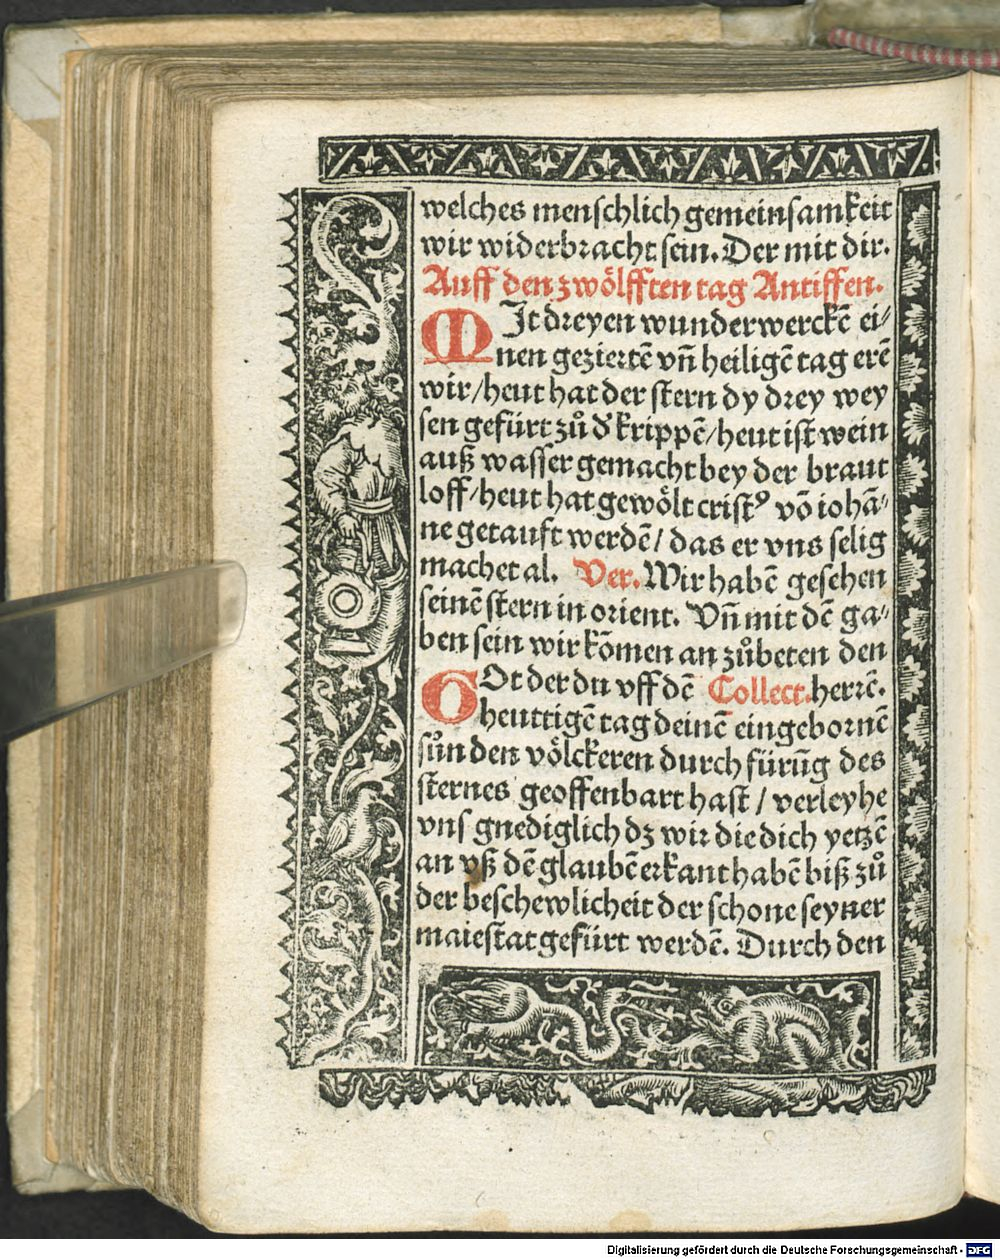 welches menschlich gemeinsamkeit
wir widerbracht sein. Der mit dir.
Auff den zwölfften tag Antiffen.
MIt dreyen wunderwerckē ei⸗
nen geziertē vñ heiligē tag erē
wir/heut hat der stern dy drey wey
sen gefürt zů d' krippē/heut ist wein
auß wasser gemacht bey der braut
loff/heut hat gewölt crist⁹ vō iohā⸗
ne getauft werdē/ das er vns selig
machet al. Ver. Wir habē gesehen
seinē stern in orient. Vñ mit dē ga⸗
ben sein wir kōmen an zůbeten den
GOt der du vff dē Collect. herrē.
heuttigē tag deinē eingebornē
sůn den völckeren durch fürūg des
sternes geoffenbart hast / verleyhe
vns gnediglich dz wir die dich yetzē
an vß dē glaubē erkant habē biß zů
der beschewlicheit der schone seyner
maiestat gefürt werdē. Durch den
Digitalisierung gefördert durch die Deutsche Forschungsgemeinschaft - DFG